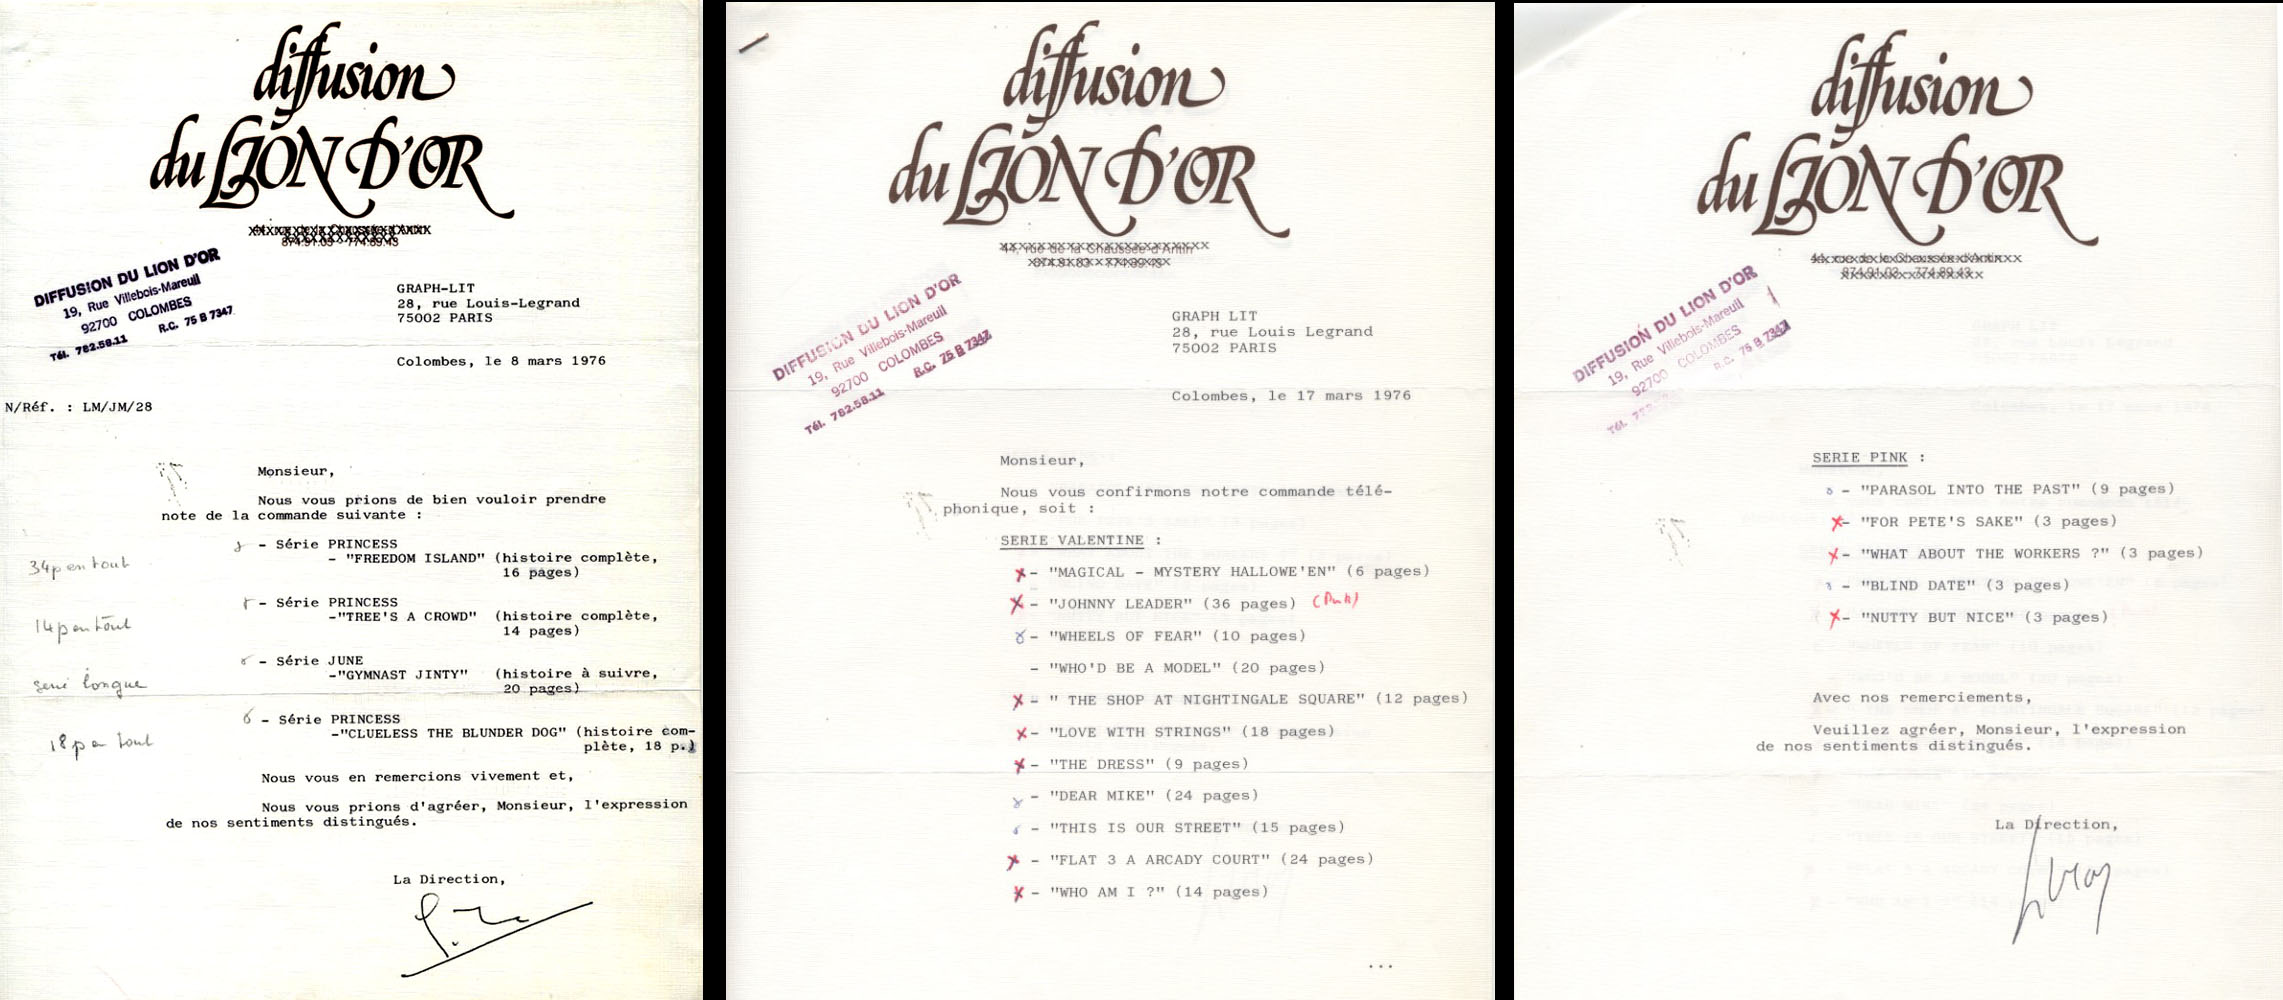 diffusion
du LION D'OR
DIFFUSION DU LION D'OR
19, Rue Villebois-Mareuil
92700 COLOMBES
Tél. 782.58.11 R.C. 75 B 7347
GRAPH-LIT
28, rue Louis-Legrand
75002 PARIS
Colombes, le 8 mars 1976
N/Réf. : LM/JM/28
Monsieur,
Nous vous prions de bien vouloir prendre
note de la commande suivante :
- Série PRINCESS
- "FREEDOM ISLAND" (histoire complète,
16 pages)
34p en tout
- Série PRINCESS
-"TREE'S A CROWD" (histoire complète,
14 pages)
14p en tout
- Série JUNE
-"GYMNAST JINTY" (histoire à suivre,
20 pages)
serie longue
- Série PRINCESS
-"CLUELESS THE BLUNDER DOG" (histoire com-
plète, 18 p.)
18p en tout
Nous vous en remercions vivement et,
Nous vous prions d'agréer, Monsieur, l'expression
de nos sentiments distingués.
La Direction,
diffusion
du LION D'OR
44, rue de la Chaussée d'Antin
874.91.03 - 774.89.43
DIFFUSION DU LION D'OR
19, Rue Villebois-Mareuil
92700 COLOMBES
Tél. 782.58.11 R.C. 75 B 7347
GRAPH LIT
28, rue Louis Legrand
75002 PARIS
Colombes, le 17 mars 1976
Monsieur,
Nous vous confirmons notre commande télé-
phonique, soit :
SERIE VALENTINE :
- "MAGICAL - MYSTERY HALLOWE'EN" (6 pages)
- "JOHNNY LEADER" (36 pages) (Pink)
- "WHEELS OF FEAR" (10 pages)
- "WHO'D BE A MODEL" (20 pages)
- " THE SHOP AT NIGHTINGALE SQUARE" (12 pages)
- "LOVE WITH STRINGS" (18 pages)
- "THE DRESS" (9 pages)
- "DEAR MIKE" (24 pages)
- "THIS IS OUR STREET" (15 pages)
- "FLAT 3 A ARCADY COURT" (24 pages)
- "WHO AM I ?" (14 pages)
...
diffusion
du LION D'OR
44, rue de la Chaussée d'Antin
874.91.03 - 774.89.43
DIFFUSION DU LION D'OR
19, Rue Villebois-Mareuil
92700 COLOMBES
Tél. R.C. 75 B 7347
SERIE PINK :
- "PARASOL INTO THE PAST" (9 pages)
- "FOR PETE'S SAKE" (3 pages)
- "WHAT ABOUT THE WORKERS ?" (3 pages)
- "BLIND DATE" (3 pages)
- "NUTTY BUT NICE" (3 pages)
Avec nos remerciements,
Veuillez agréer, Monsieur, l'expression
de nos sentiments distingués.
La Direction,